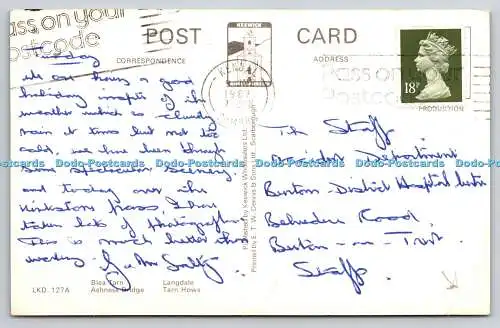 Pass on your
Postcode
POST
CARD
KESWICK
CORRESPONDENCE
ADDRESS
KENDAL
1987
CUMBRIA
Pass on your
Postcode
18P
PRODUCTION
Tuesday
We are having a good
holiday inspite of the
weather which is cloudy
rain at times but not too
cold, we have been through
some spectacular scenery
and today over the
Kirkstone pass, I have
taken lots of photographs
This is much better than
working.
The Staff
Accident Department
Burton District Hospital Centre
Belvedere Road
Burton - on - Trent
Staffs.
Dodo-Postcards Dodo-Postcards Dodo-Postcards Dodo-Postcards Dodo-Postcards Dodo-Postcards
LKD. 127A
Blea Tarn
Ashness Bridge
Langdale
Tarn Hows